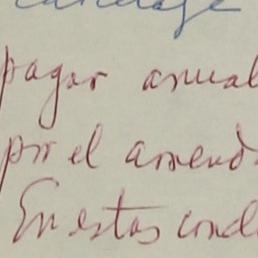 pagar anual
por el arrend
En estas cond